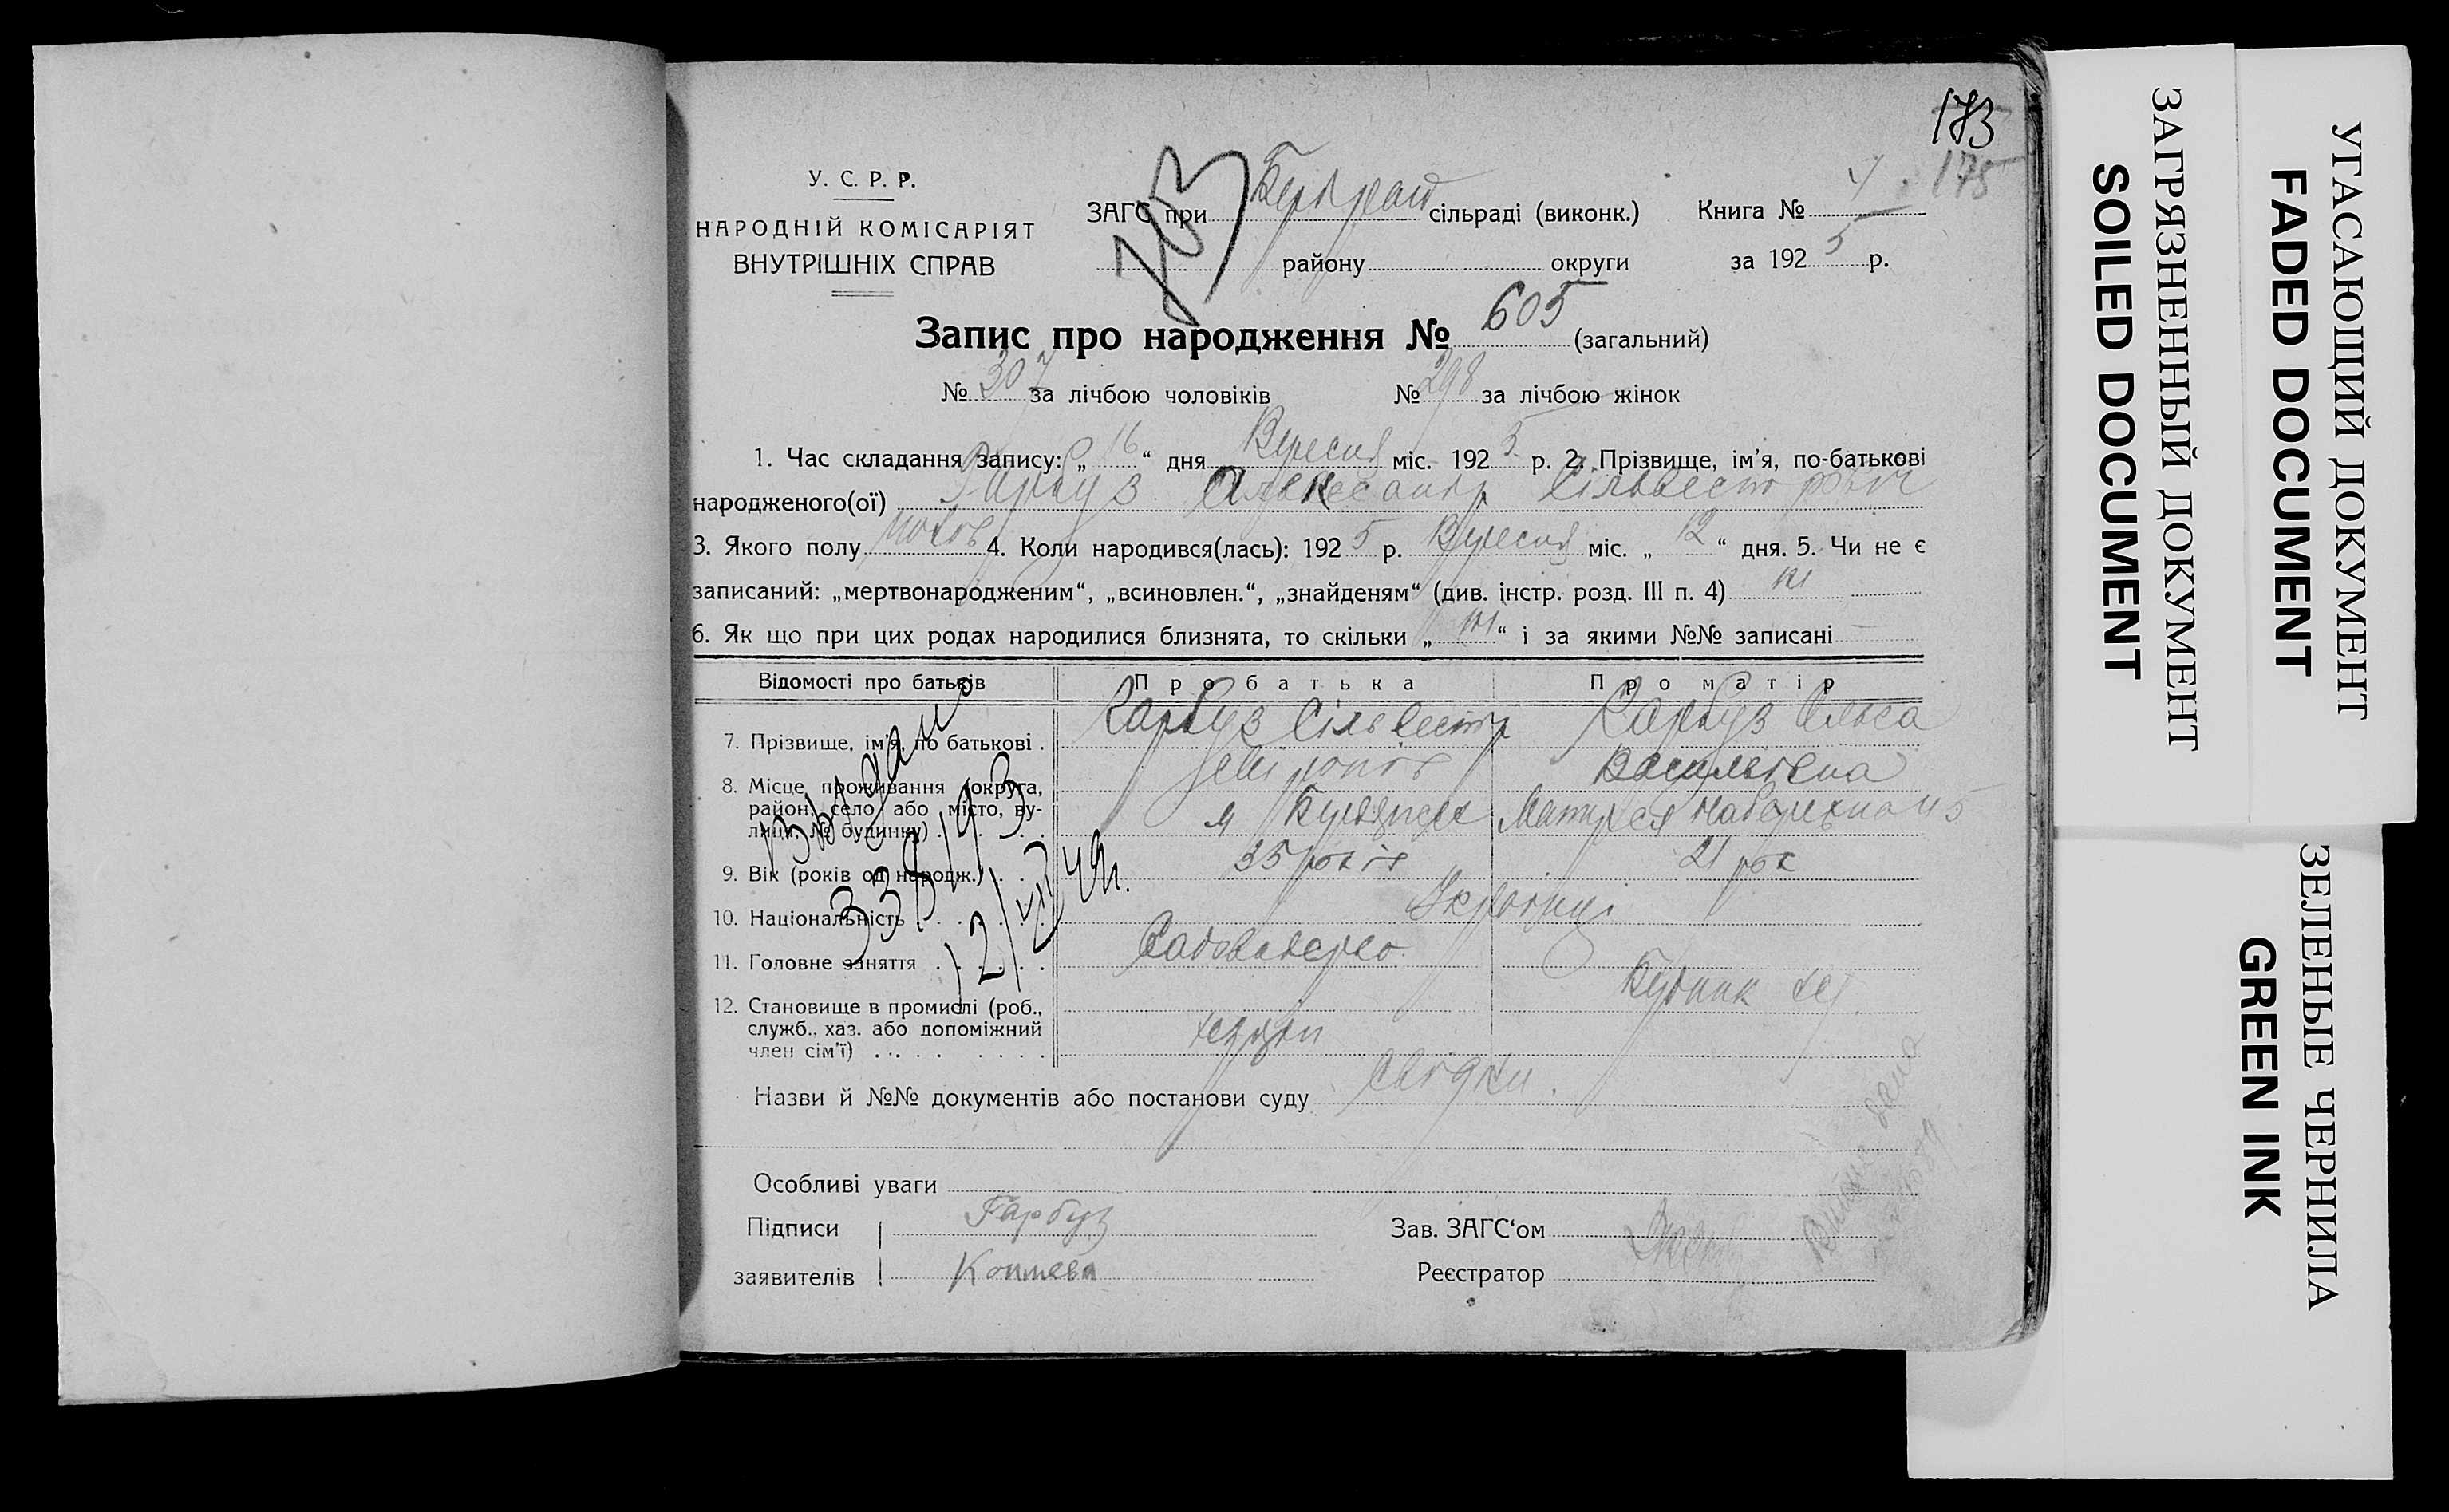 173
175
У. С. Р. Р.
НАРОДНІЙ КОМІСАРІЯТ
ВНУТРІШНІХ СПРАВ
ЗАГС при сільраді (виконк.)
Книга № 4
району округи
за 1925 р.
Запис про народження № 605 (загальний)
№ 307 за лічбою чоловіків № 298 за лічбою жінок
1. Час складання запису: „ 16 “ дня Вересня міс. 1925 р. 2. Прізвище, ім’я, по-батькові
народженого(ої) Гарбуз Александр Сільвестрович
3. Якого полу 4. Коли народився(лась): 1925 р. Вересня міс. „ 12 “ дня. 5. Чи не є
записаний: „мертвонародженим“, „всиновлен.“, „знайденям“ (див. інстр. розд. III п. 4) ні
6. Як що при цих родах народилися близнята, то скільки „ ні “ і за якими №№ записані —
Відомості про батьків Про батька Про матір
7. Прізвище, ім’я, по батькові . Гарбуз Сільвестр Гарбуз Ольга
Васильевна
8. Місце проживання (округа,
район, село або місто, ву-
лиця, № будинку) . . . . .
м Бердянськ
9. Вік (років од народж.) . . . 35 років 21 рок
10. Національність . . . . . Українці
11. Головне заняття . . . . . .
12. Становище в промислі (роб.,
служб., хаз. або допоміжний
член сім’ї) . . . . . . . .
хазяїн
Назви й №№ документів або постанови суду Свідки.
Особливі уваги
Підписи Гарбуз
заявителів
Зав. ЗАГС‘ом
Реєстратор
Выдано
УГАСАЮЩИЙ ДОКУМЕНТ
FADED DOCUMENT
ЗАГРЯЗНЕННЫЙ ДОКУМЕНТ
SOILED DOCUMENT
ЗЕЛЕНЫЕ ЧЕРНИЛА
GREEN INK